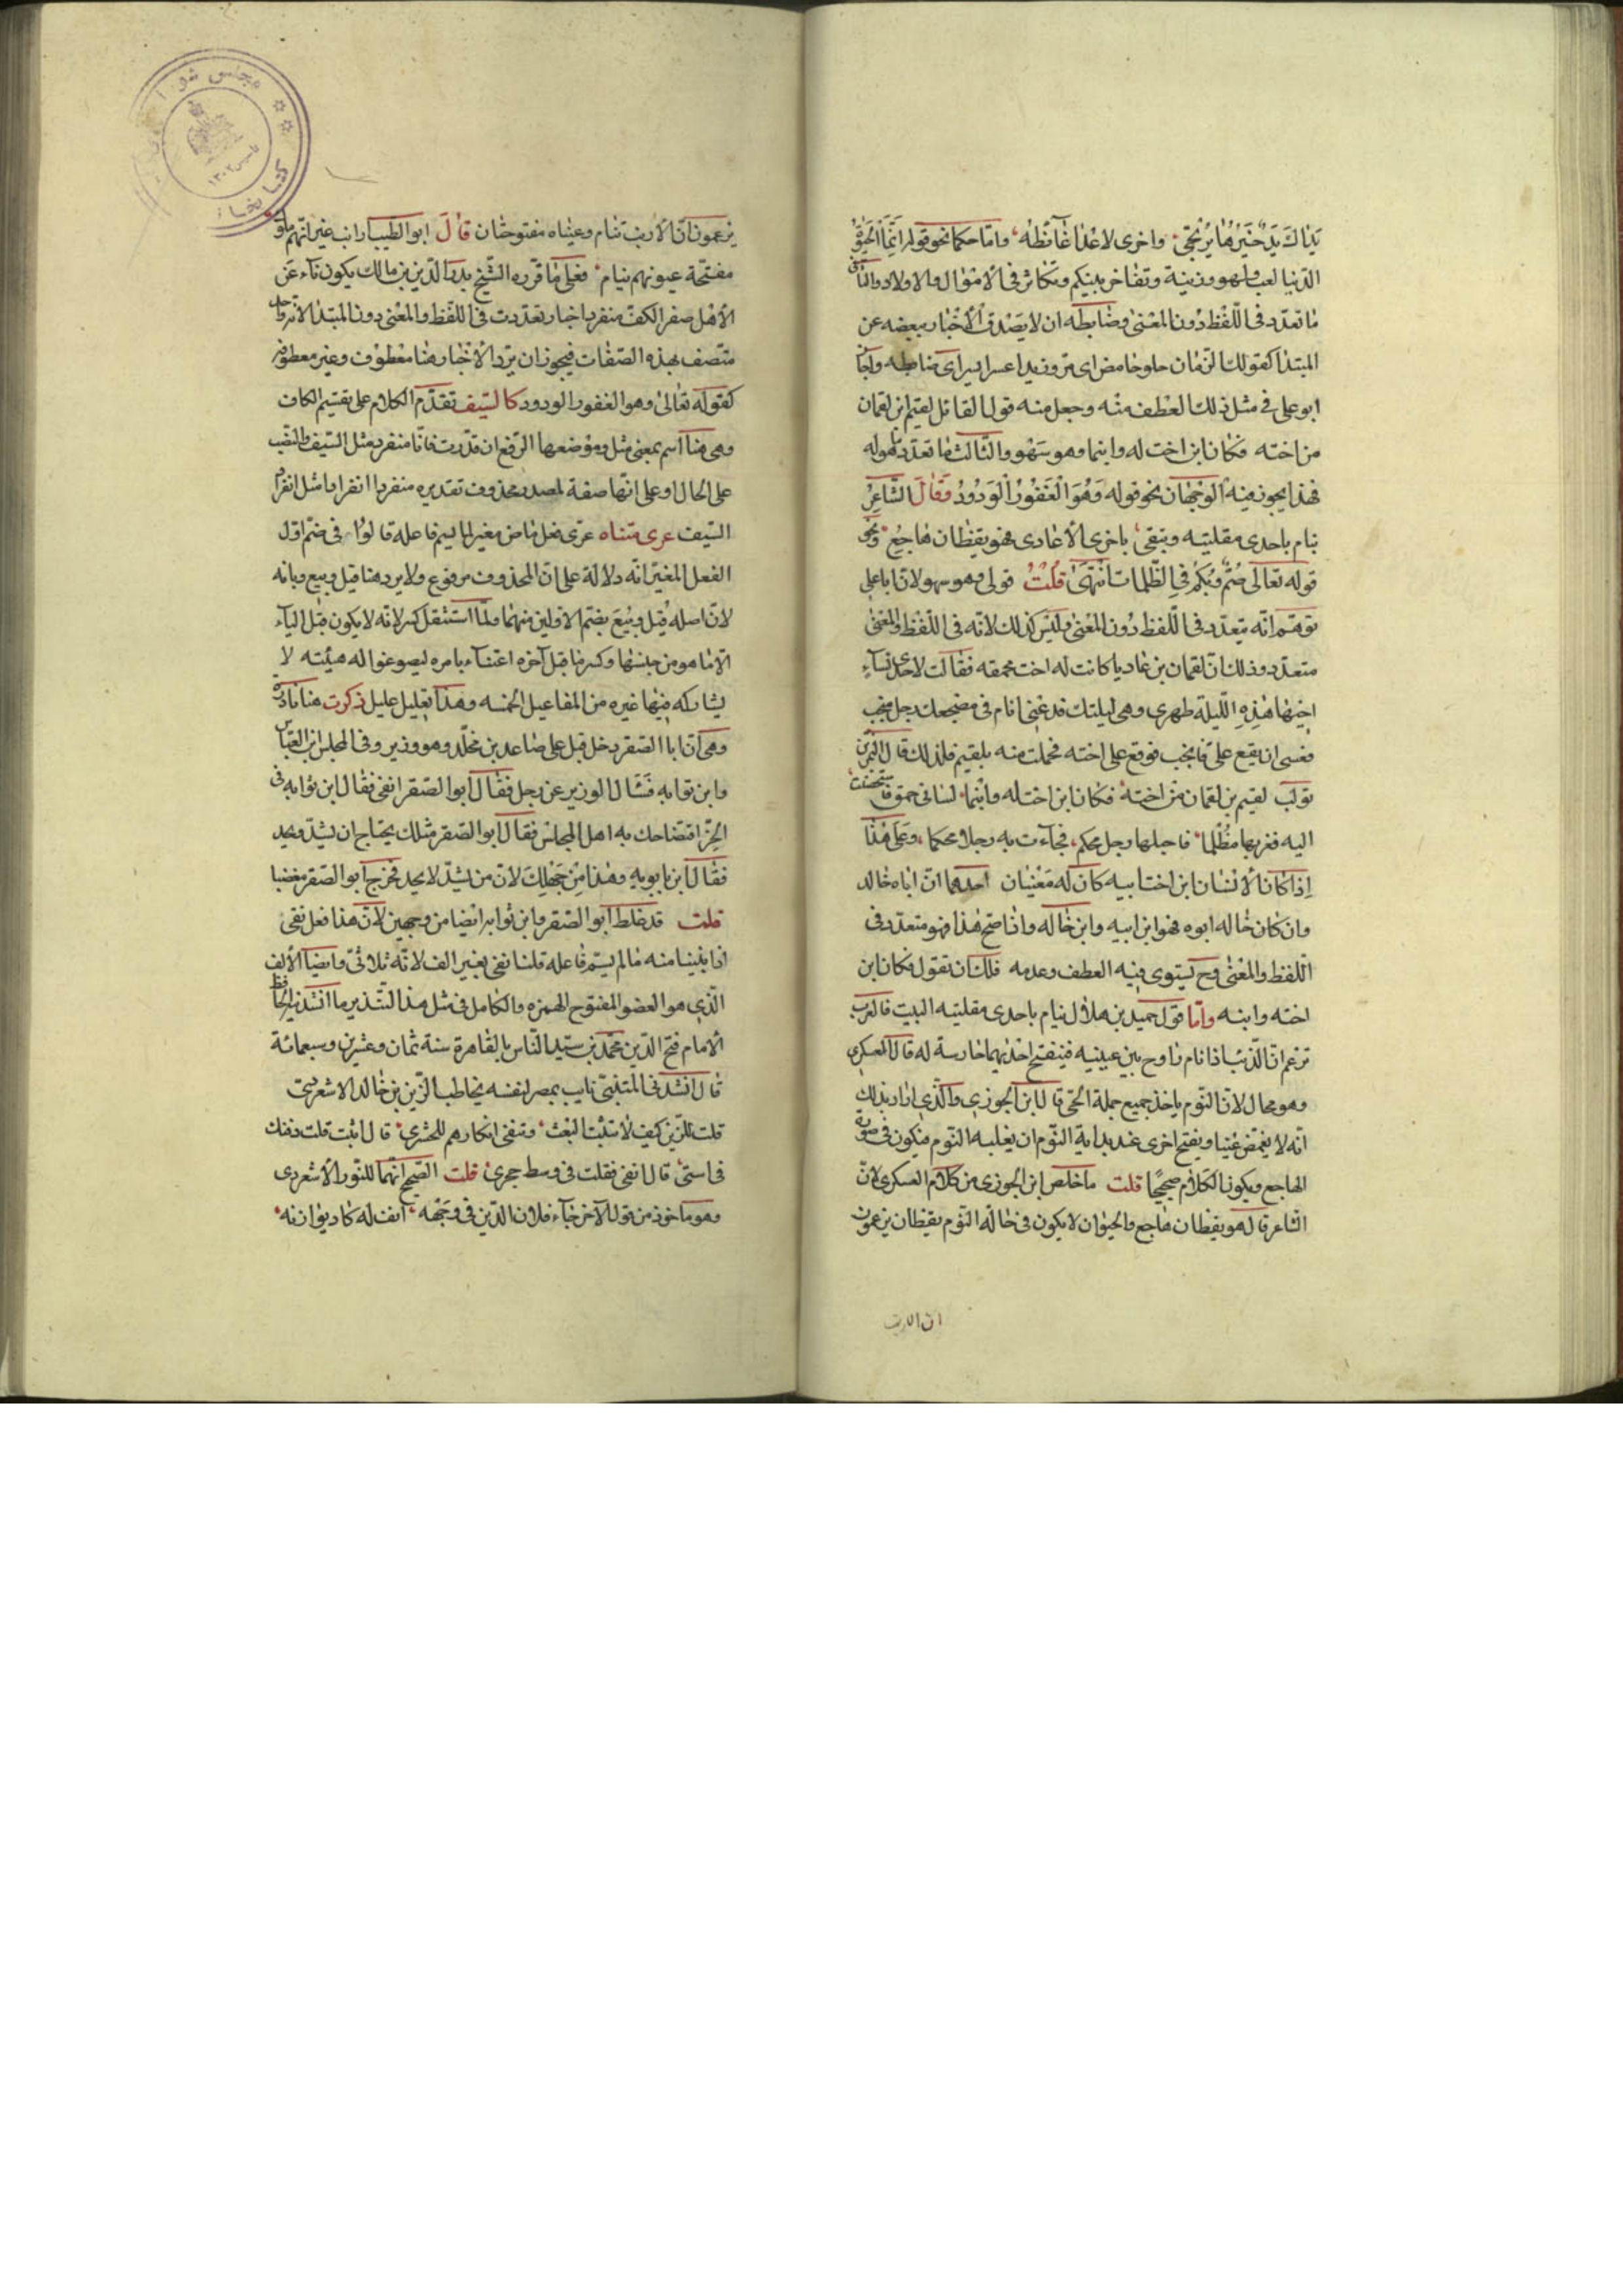 يَداكَ يَدٌ خَيْرُهَا يُرْتَجَى وأخرى لاعدائها غائظه واما حكما نحو قوله انما الحيوة
الدنيا لعب ولهو وزينة وتفاخر بينكم وتكاثر في الاموال والاولاد والثاني
ما تعدد في اللفظ دون المعنى وضابطه ان لا يصدق الاخبار ببعضه عن
المبتدا كقولك الرمان حلو حامض اى مز وزيد اعسر ايسر اى ضابط واجاز
ابو على في مثل ذلك العطف منه وجعل منه قول القائل لقيم ابن لقمان
من اخته فكان ابن اخت له وابنما وهو سهو والثالث ما تعدد ما هو له
فهذا يجوز فيه الوجهان نحو قوله وهو الغفور الودود وقال الشاعر
ينام باحدى مقلتيه ويتقى باخرى الاعادى فهو يقظان هاجع ونحو
قوله تعالى صم وبكم في الظلمات انتهى قلت قوله وهو سهو لان ابا على
توهم انه متعدد في اللفظ دون المعنى وليس كذلك لانه في اللفظ والمعنى
متعدد وذلك ان لقمان بن عاد يا كانت له اخت محمقة فقالت لاحدى نساء
اخيها هذه الليلة طهري وهى ليلتك فدعينى انام في مضجعك رجل منجب
فعسى ان يقع على فانجب فوقع على اخته فحملت منه بلقيم فلذلك قال النمر بن
تولب لقيم بن لقمان من اخته فكان ابن اخت له وابنما ليالى حمق فاستحصنت
اليه فغر بها مظلما فاحبلها رجل محكم فجاءت به رجلا محكما وعلى هذا
اذا كان الانسان ابن اخت ابيه كان له معنيان احدهما ان اباه خاله
وان كان خاله ابوه فهو ابن ابيه وابن خاله واذا صح هذا فهو متعدد في
اللفظ والمعنى وح يستوى فيه العطف وعدمه فلك ان تقول فكان ابن
اخته وابنه واما قول حميد بن هلال ينام باحدى مقلتيه البيت فالعرب
تزعم ان الذئب اذا نام ناوح بين عينيه فيفتح احديهما حارسة له قال العسكرى
وهو محال لان النوم ياخذ جميع جملة الحى قال ابن الجوزي والذي اراد بذلك
انه لا يغمض عينا ويفتح اخرى عند بداية النوم ان يغلبه النوم فيكون في صورة
الهاجع ويكون الكلام صحيحا قلت ما خلص ابن الجوزى من كلام العسكرى لان
الشاعر قال هو يقظان هاجع والحيوان لا يكون في حالة النوم يقظان يزعمون
ان الارنب
يزعمون ان الارنب تنام وعيناه مفتوحتان قال ابو الطيب ارانب غير انهم ملوك
مفتحة عيونهم نيام فعلى ما قرره الشيخ بدر الدين بن مالك يكون ناء عن
الاهل صفر الكف منفرد اخبار تعددت في اللفظ والمعنى دون المبتدا لانه رجل
متصف بهذه الصفات فيجوز ان يرد الاخبار هنا معطوف وغير معطوف
كقوله تعالى وهو الغفور الودود كالسيف تقدم الكلام على تقسيم الكاف
وهى هنا اسم بمعنى مثل وموضعها الرفع ان قدرت فانا منفرد مثل السيف والنصب
على الحال او على انها صفة لمصدر محذوف تقديره منفردا انفرادا مثل انفراد
السيف عرى متناه عرى فعل ماض مغير لما لم يسم فاعله قالوا في ضم اول
الفعل المغير انه دلالة على ان المحذوف مرفوع ولا يرد هنا قيل وبيع وبابه
لان اصله قُيِل وبُيِعَ بضم الاولين منهما ولما استثقل كسر لانه لا يكون قبل الياء
الا ما هو من جنسها وكسر ما قبل آخره اعتناء بامره ليصوغوا له هيئته لا
يشاركه فيها غيره من المفاعيل الخمسه وهذا تعليل عليل ذكرت هنا نادرة
وهى ان ابا الصقر دخل قبل على صاعد بن مخلد وهو وزير وفي المجلس ابو العباس
وابن ثوابه فسال الوزير عن رجل فقال ابو الصقر انفى فقال ابن ثوابه في
الخرء فتضاحك به اهل المجلس فقال ابو الصقر مثلك يحتاج ان يشد ويحد
فقال ابن بابويه وهذا من جهلك لان من يشد لا يحد فخرج ابو الصقر مغضبا
قلت قد غلط ابو الصقر وابن ثوابه ايضا من وجهين لان هذا فعل نفى
اذا بنينا منه ما لم يسم فاعله قلنا نفى بغير الف لانه ثلاثى وايضا الالف
الذي هو العضو المفتوح الهمزه والكامل في مثل هذا التنذير ما انشدنيه الحافظ
الامام فتح الدين محمد بن سيد الناس بالقاهرة سنة ثمان وعشرين وسبعمائة
قال انشدني المتنبى نايب بمصر لنفسه يخاطب الزين بن خالد الاشعرى
قلت للزين كيف لا تثبت البعث وتنفى انكارهم للحشرى قال اثبت قلت ذقنك
في استى قال انفى فقلت في وسط جحرى قلت الصحيح انهما للنور الاشعردى
وهو ماخوذ من قول الآخر جاء فلان الدين في وجهه انف له كاد يوازنه